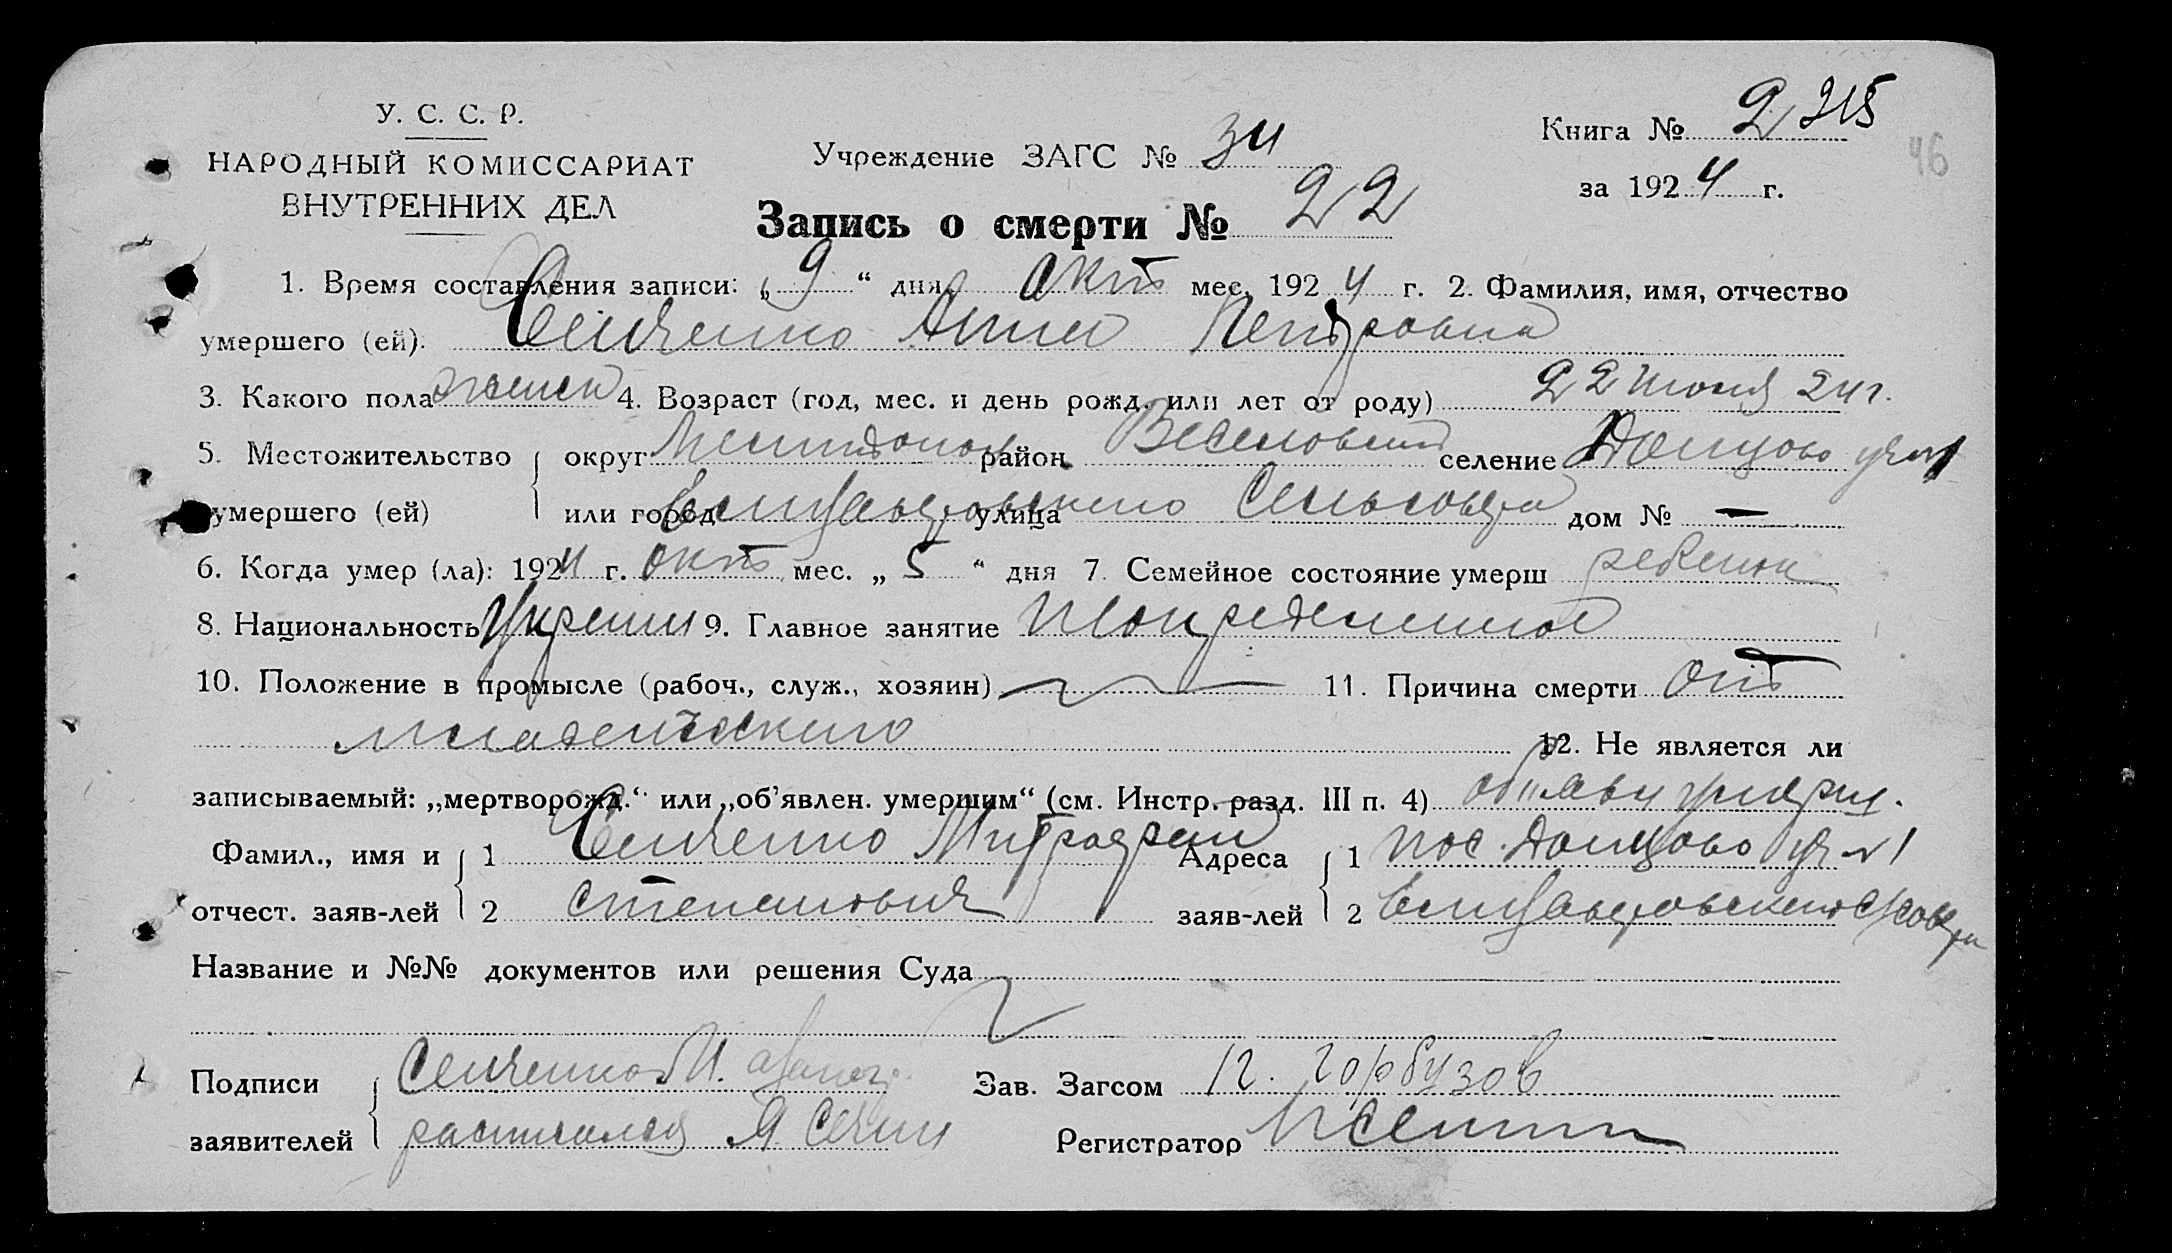 У. С. С. Р.
НАРОДНЫЙ КОМИССАРИАТ
ВНУТРЕННИХ ДЕЛ
Учреждение ЗАГС № 34
Книга № 2 215
46
за 1924 г.
Запись о смерти № 22
1. Время составления записи: „9“ дня Окт мес. 1924 г. 2. Фамилия, имя, отчество
умершего (ей). Сенченко Анна Петровна
3. Какого пола женск 4. Возраст (год, мес. и день рожд. или лет от роду) 22 Июня 24 г.
5. Местожительство округ Мелитопол район Веселовский селение Донцово уч №1
умершего (ей) или город улица Сельсовета дом № —
6. Когда умер (ла): 1924 г. Окт мес. „5“ дня 7. Семейное состояние умерш ребенок
8. Национальность 9. Главное занятие
10. Положение в промысле (рабоч., служ., хозяин) 11. Причина смерти от
младенческого 12. Не является ли
записываемый: „мертворожд.“ или „об’явлен. умершим“ (см. Инстр. разд. III п. 4)
Фамил., имя и 1 Сенченко Митрофан Адреса 1 пос. Донцово уч №1
отчест. заяв-лей 2 Степанович заяв-лей 2
Название и №№ документов или решения Суда
Подписи Сенченко М. Зав. Загсом Горбузов
заявителей расписался Я Регистратор